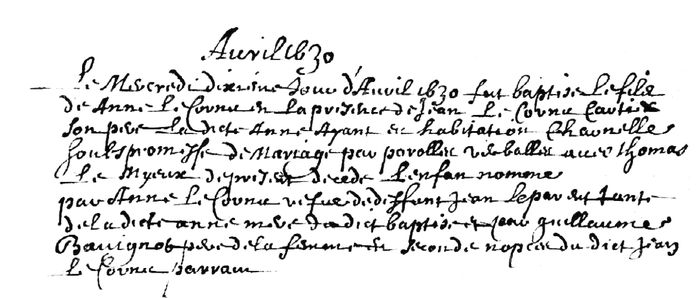 Auvril 1630
Le Mercredi dixiéme Jour d'Auvril 1630 fut baptise le fils
de Anne Le Cornu en la presence de Jean Le Cornu
son pere la dicte Anne Ayant eu habitation Charnelle
soubs promesse de Mariage par parolles verballes avec thomas
Le Myeux de present decede Lenfan nomme
par Anne Le Cornu vefue de deffunt Jean Leparent tante
de la dicte anne mere du dict baptise et par guillaume
pere de la femme en seconde nopces du dict Jean
Le Cornu parrain